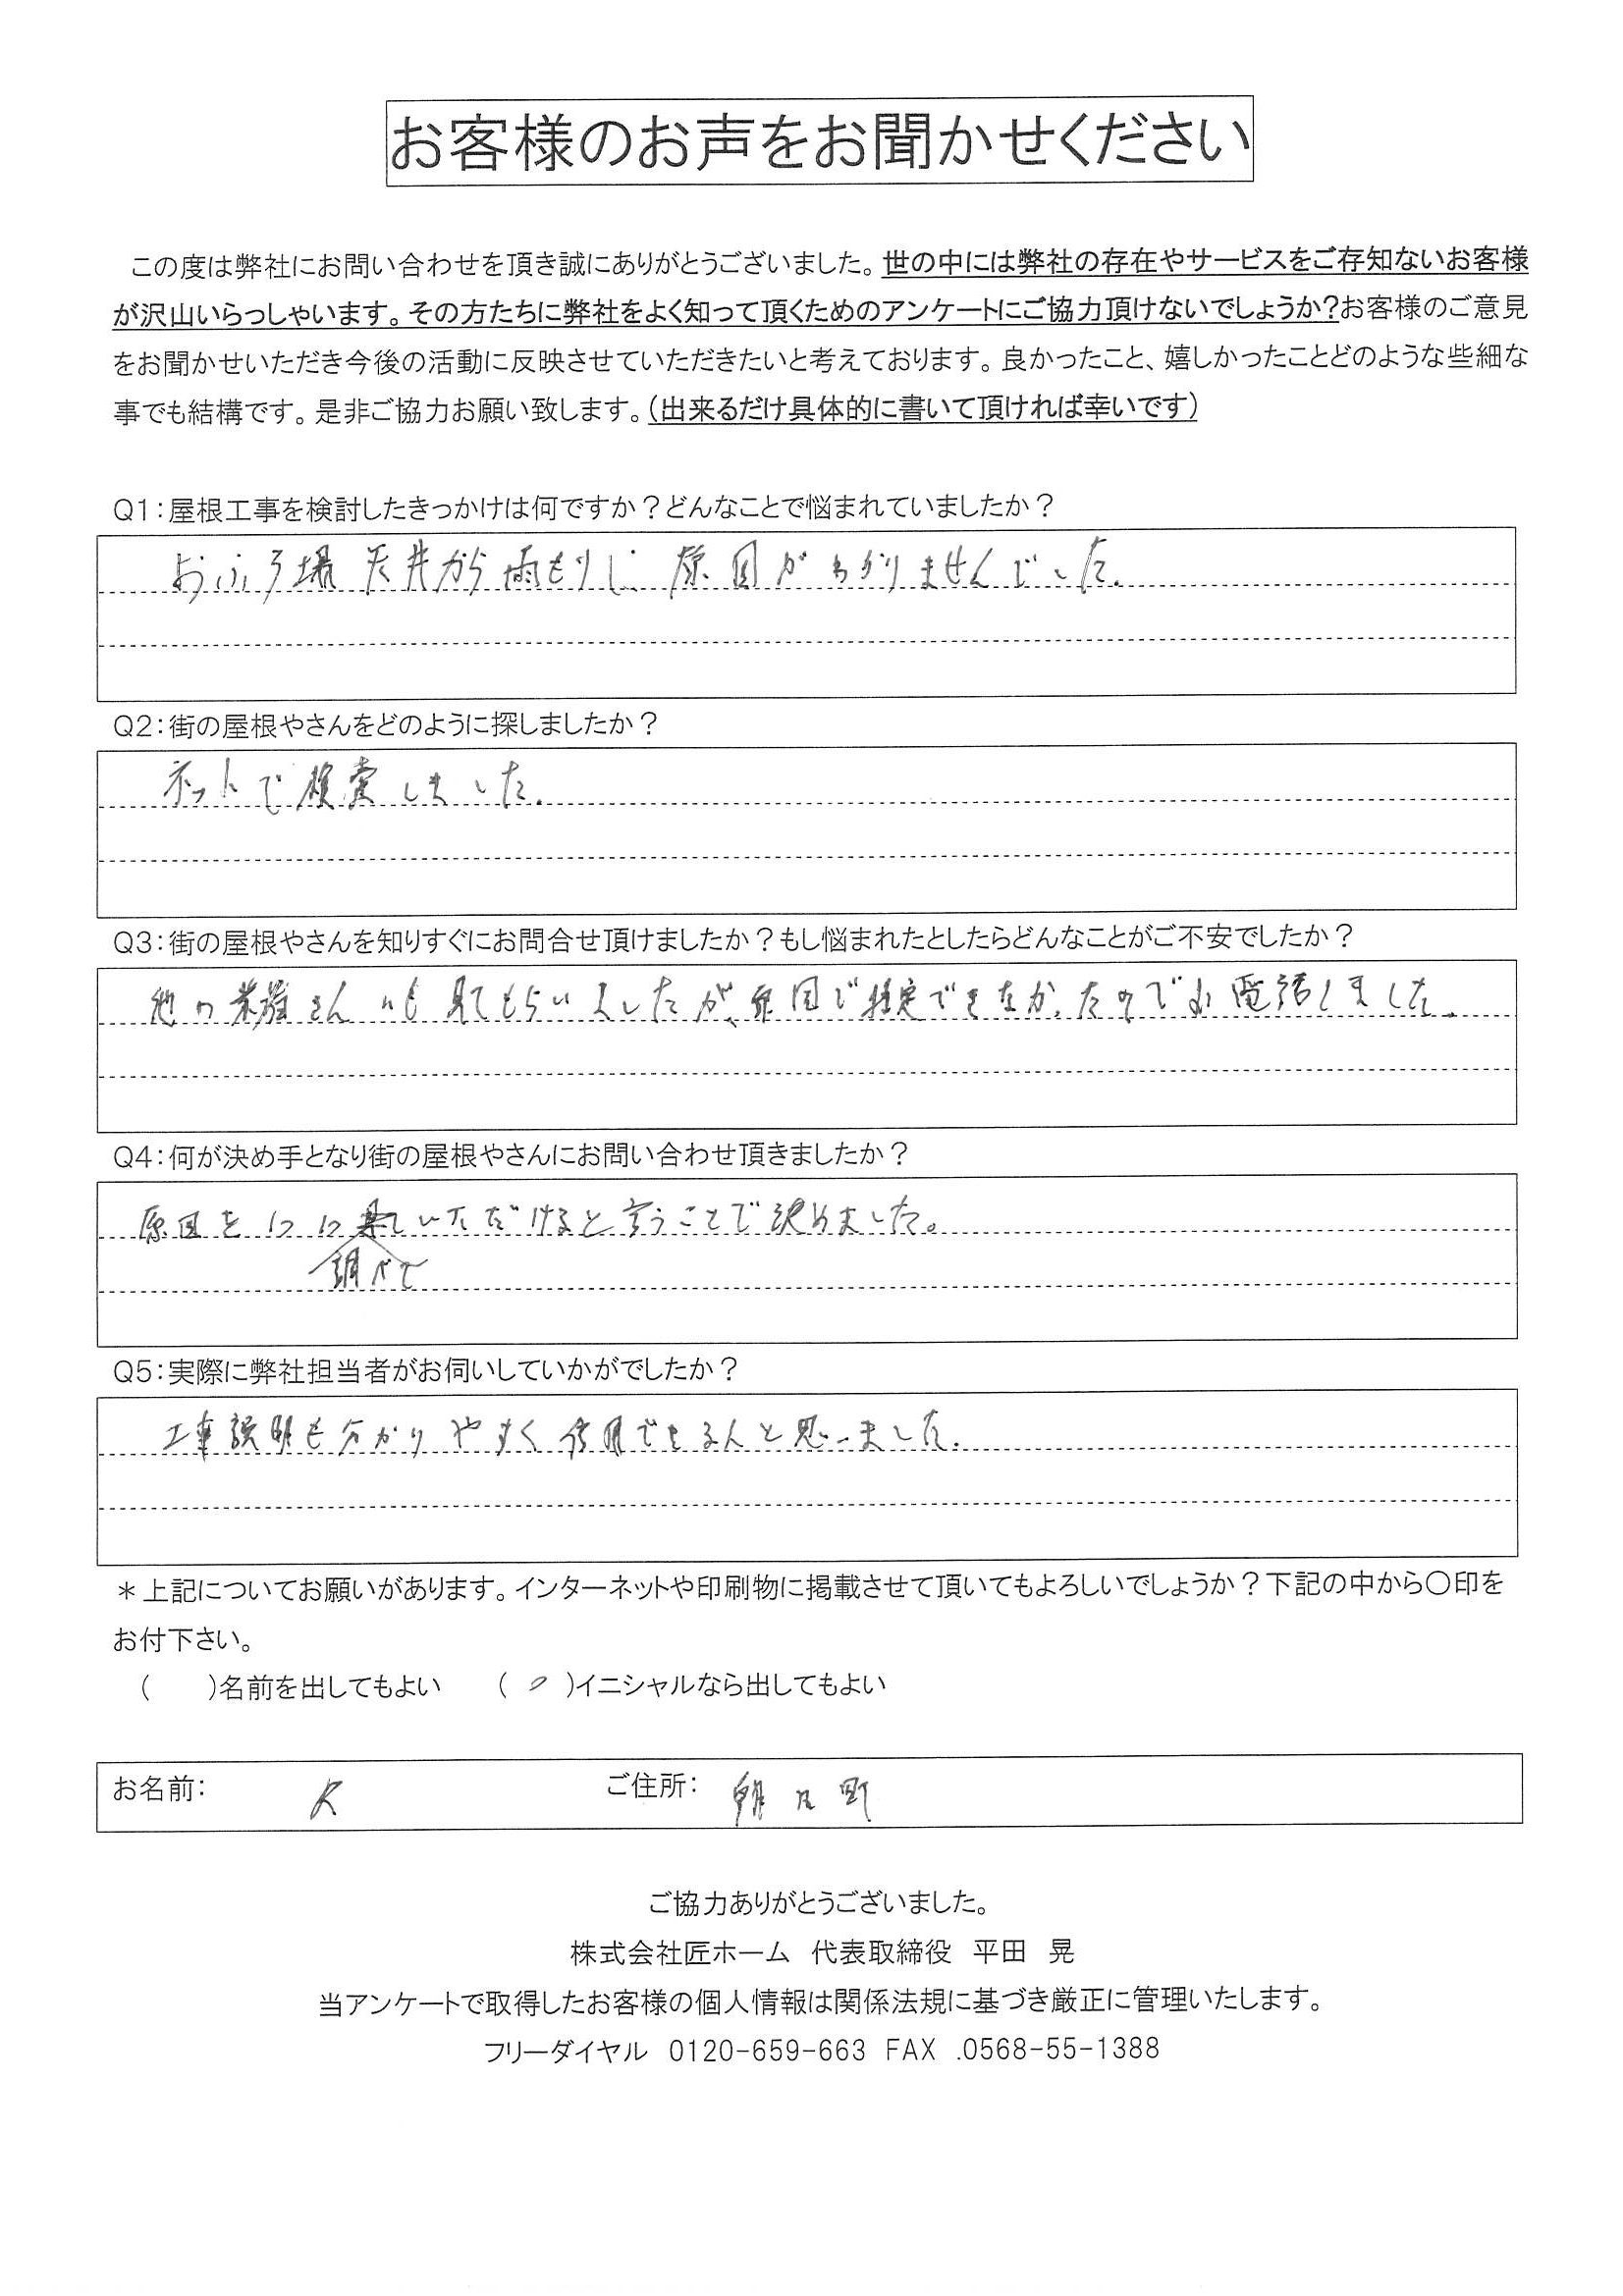 お客様のお声をお聞かせください
この度は弊社にお問い合わせを頂き誠にありがとうございました。世の中には弊社の存在やサービスをご存知ないお客様
が沢山いらっしゃいます。その方たちに弊社をよく知って頂くためのアンケートにご協力頂けないでしょうか?お客様のご意見
をお聞かせいただき今後の活動に反映させていただきたいと考えております。良かったこと、嬉しかったことどのような些細な
事でも結構です。是非ご協力お願い致します。(出来るだけ具体的に書いて頂ければ幸いです)
Q1:屋根工事を検討したきっかけは何ですか?どんなことで悩まれていましたか?
おふろ場天井から雨もりし、原因がわかりませんでした。
Q2:街の屋根やさんをどのように探しましたか?
ネットで検索しました。
Q3:街の屋根やさんを知りすぐにお問合せ頂けましたか?もし悩まれたとしたらどんなことがご不安でしたか?
他の業種さんにも見てもらいましたが、原因で推定できなかったのでお電話しました。
Q4:何が決め手となり街の屋根やさんにお問い合わせ頂きましたか?
原因を いただけると言うことで決めました。
調べて
Q5:実際に弊社担当者がお伺いしていかがでしたか?
工事説明も分かりやすく信用できる人と思いました。
*上記についてお願いがあります。インターネットや印刷物に掲載させて頂いてもよろしいでしょうか?下記の中から○印を
お付下さい。
( )名前を出してもよい (○)イニシャルなら出してもよい
お名前: ご住所: 朝日町
ご協力ありがとうございました。
株式会社匠ホーム 代表取締役 平田 晃
当アンケートで取得したお客様の個人情報は関係法規に基づき厳正に管理いたします。
フリーダイヤル 0120-659-663 FAX .0568-55-1388